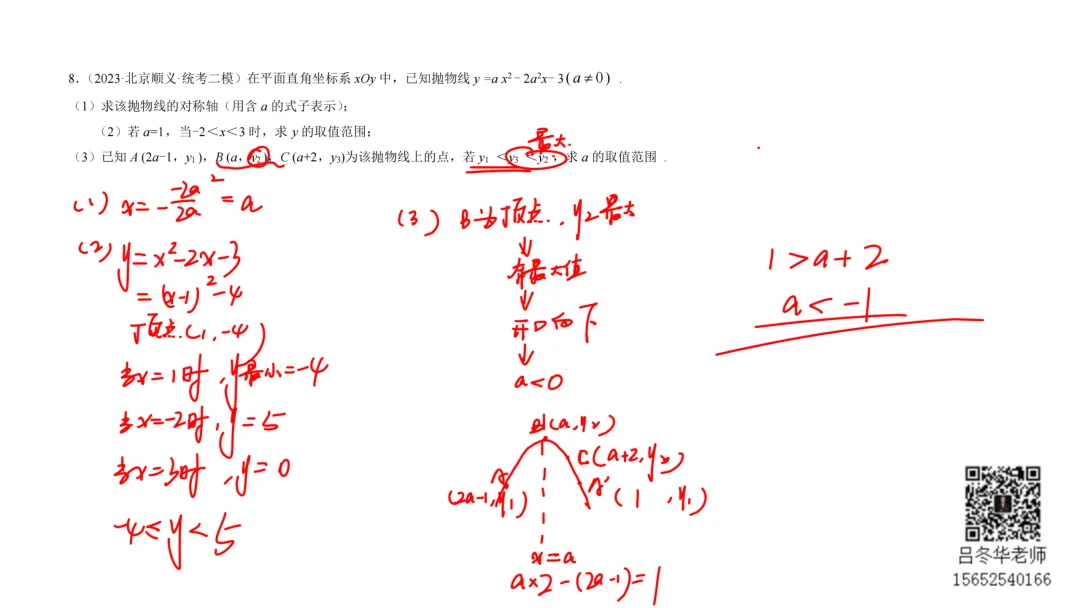 8.（2023·北京顺义·统考二模）在平面直角坐标系 xOy 中，已知抛物线 y =a x²﹣2a²x﹣3(a≠0)．
（1）求该抛物线的对称轴（用含 a 的式子表示）；
（2）若 a=1，当-2＜x＜3 时，求 y 的取值范围；
最大.
（3）已知 A (2a−1，y₁)，B (a，y₂)，C (a+2，y₃)为该抛物线上的点，若 y₁ ＜y₃ ＜y₂，求 a 的取值范围．
(1) x = - -2a²/2a = a
(2) y = x²-2x-3
= (x-1)²-4
顶点.(1,-4)
当x=1时,y最小=-4
当x=-2时,y=5
当x=3时,y=0
-4≤y<5
(3) B为顶点.,y₂最大
↓
有最大值
↓
开口向下
↓
a<0
B(a,y₂)
C(a+2,y₃)
A
(2a-1,y₁)
A'(1,y₁)
x=a
a×2-(2a-1)=1
1>a+2
a<-1
吕冬华老师
15652540166